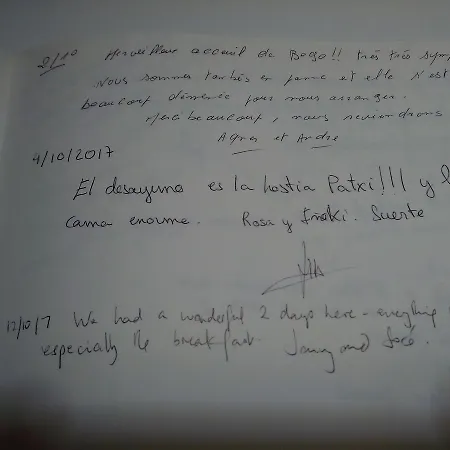 2/10 Merveilleux accueil de Bego!! très très symp
Nous sommes tombés en panne et elle s'est
beaucoup démenée pour nous arranger.
Merci beaucoup, nous reviendrons
Agnes et Andre
4/10/2017
El desayuno es la hostia Patxi!!! y l
cama enorme. Rosa y Iñaki. Suerte
12/10/7 We had a wonderful 2 days here - everything
especially the breakfast. and